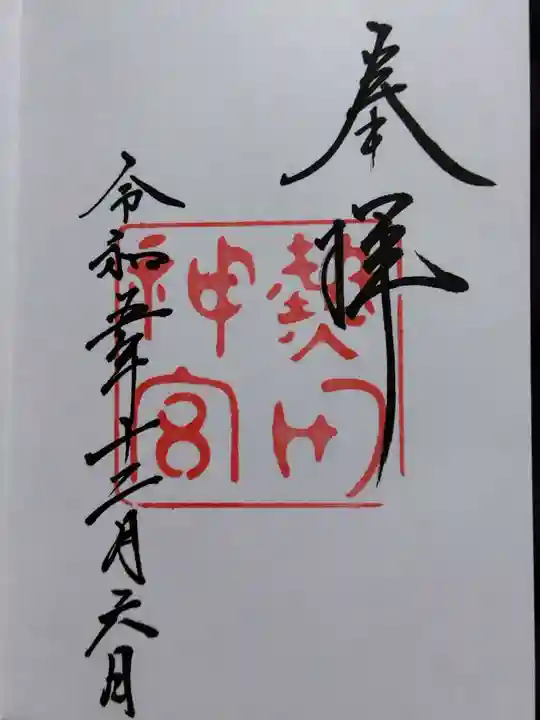 奉拝
熱田
神宮
令和五年十二月六日